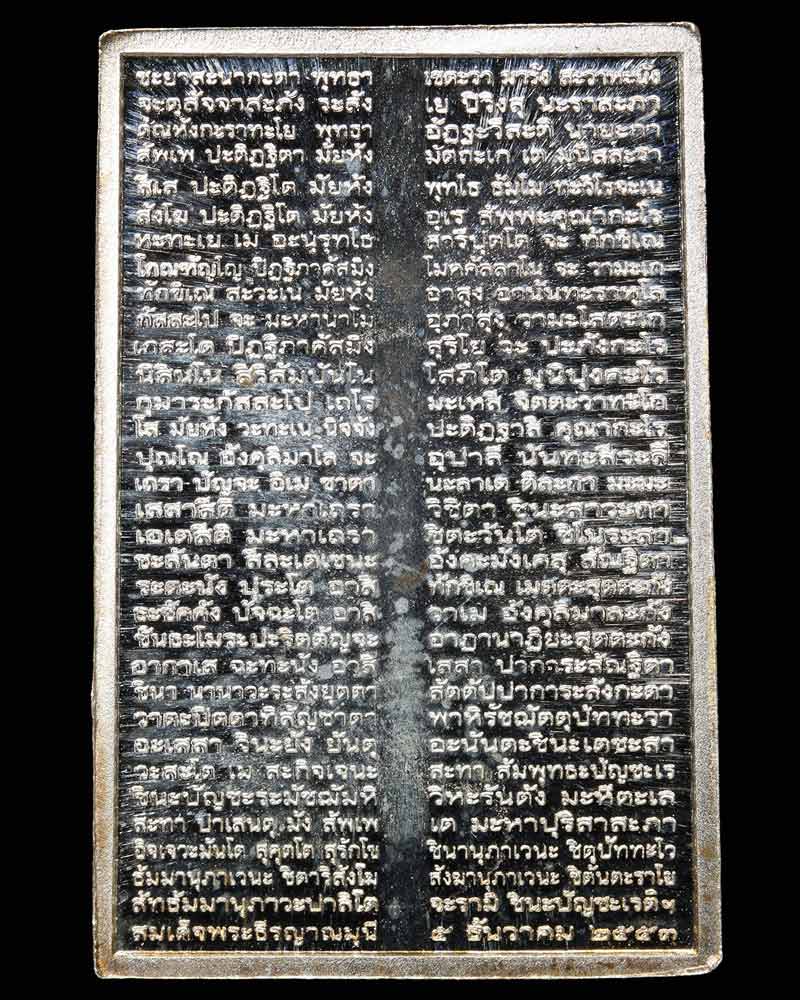 ชะยาสะนากะตา พุทธา เชตะวา มารัง สะวาหะนัง
จะตุสัจจาสะภัง ระสัง เย ปิวิงสุ นะราสะภา
ตัณหังกะราทะโย พุทธา อัฏฐะวีสะติ นายะกา
สัพเพ ปะติฏฐิตา มัยหัง มัตถะเก เต มุนิสสะรา
สีเส ปะติฏฐิโต มัยหัง พุทโธ ธัมโม ทะวิโรจะเน
สังโฆ ปะติฏฐิโต มัยหัง อุเร สัพพะคุณากะโร
หะทะเย เม อะนุรุทโธ สารีปุตโต จะ ทักขิเณ
โกณฑัญโญ ปิฏฐิภาคัสมิง โมคคัลลาโน จะ วามะเก
ทักขิเณ สะวะเน มัยหัง อาสุง อานันทะราหุโล
กัสสะโป จะ มะหานาโม อุภาสุง วามะโสตะเก
เกสะโต ปิฏฐิภาคัสมิง สุริโย วะ ปะภังกะโร
นิสินโน สิริสัมปันโน โสภิโต มุนิปุงคะโว
กุมาระกัสสะโป เถโร มะเหสี จิตตะวาทะโก
โส มัยหัง วะทะเน นิจจัง ปะติฏฐาสิ คุณากะโร
ปุณโณ อังคุลิมาโล จะ อุปาลี นันทะสีวะลี
เถรา ปัญจะ อิเม ชาตา นะลาเต ติละกา มะมะ
เสสาสีติ มะหาเถรา วิชิตา ชินะสาวะกา
เอเตสีติ มะหาเถรา ชิตะวันโต ชิโนระสา
ชะลันตา สีละเตเชนะ อังคะมังเคสุ สัณฐิตา
ระตะนัง ปุระโต อาสิ ทักขิเณ เมตตะสุตตะกัง
ธะชัคคัง ปัจฉะโต อาสิ วาเม อังคุลิมาละกัง
ขันธะโมระปะริตตัญจะ อาฏานาฏิยะสุตตะกัง
อากาเส ฉะทะนัง อาสิ เสสา ปาการะสัณฐิตา
ชินา นานาวะระสังยุตตา สัตตัปปาการะลังกะตา
วาตะปิตตาทิสัญชาตา พาหิรัชฌัตตุปัททะวา
อะเสสา วินะยัง ยันตุ อะนันตะชินะเตชะสา
วะสะโต เม สะกิจเจนะ สะทา สัมพุทธะปัญชะเร
ชินะปัญชะระมัชฌัมหิ วิหะรันตัง มะหีตะเล
สะทา ปาเลนตุ มัง สัพเพ เต มะหาปุริสาสะภา
อิจเจวะมันโต สุคุตโต สุรักโข ชินานุภาเวนะ ชิตุปัททะโว
ธัมมานุภาเวนะ ชิตาริสังโฆ สังฆานุภาเวนะ ชิตันตะราโย
สัทธัมมานุภาวะปาลิโต จะรามิ ชินะปัญชะเรติฯ
สมเด็จพระธีรญาณมุนี ๕ ธันวาคม ๒๕๔๓